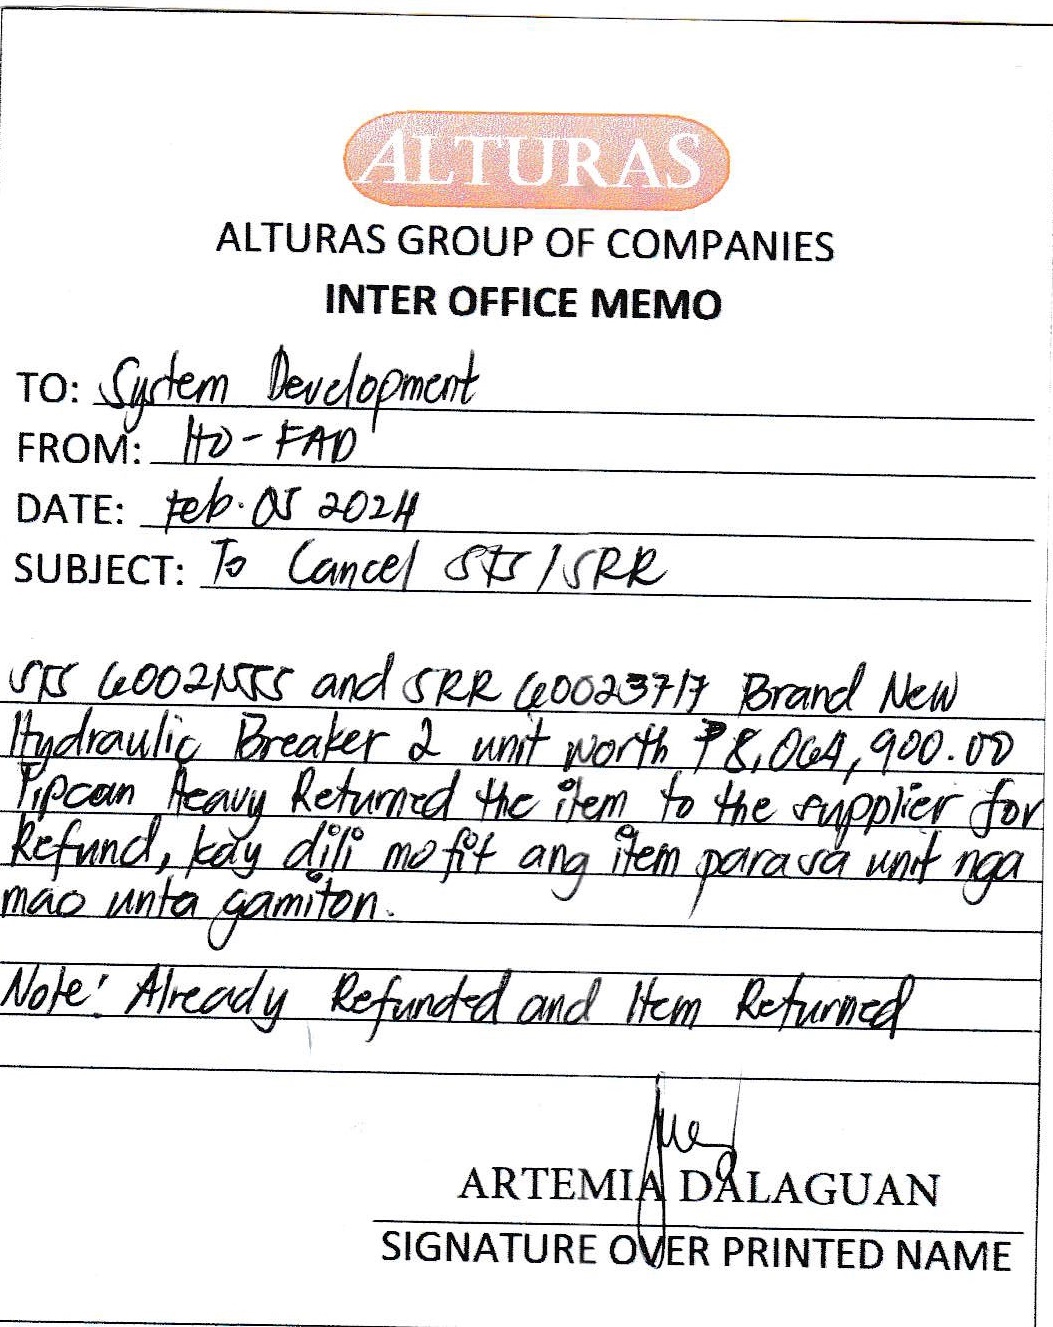 ALTURAS
ALTURAS GROUP OF COMPANIES
INTER OFFICE MEMO
TO: System Development
FROM: HO-FAD
DATE: Feb. 05 2024
SUBJECT: To Cancel STS / SRR
STS and SRR 60023717 Brand New
Hydraulic Breaker 2 unit worth ₱8,064,900.00
Heavy Returned the item to the supplier for
Refund, kay dili mo fit ang item para sa unit nga
mao unta gamiton.
Note: Already Refunded and Item Returned
ARTEMIA DALAGUAN
SIGNATURE OVER PRINTED NAME